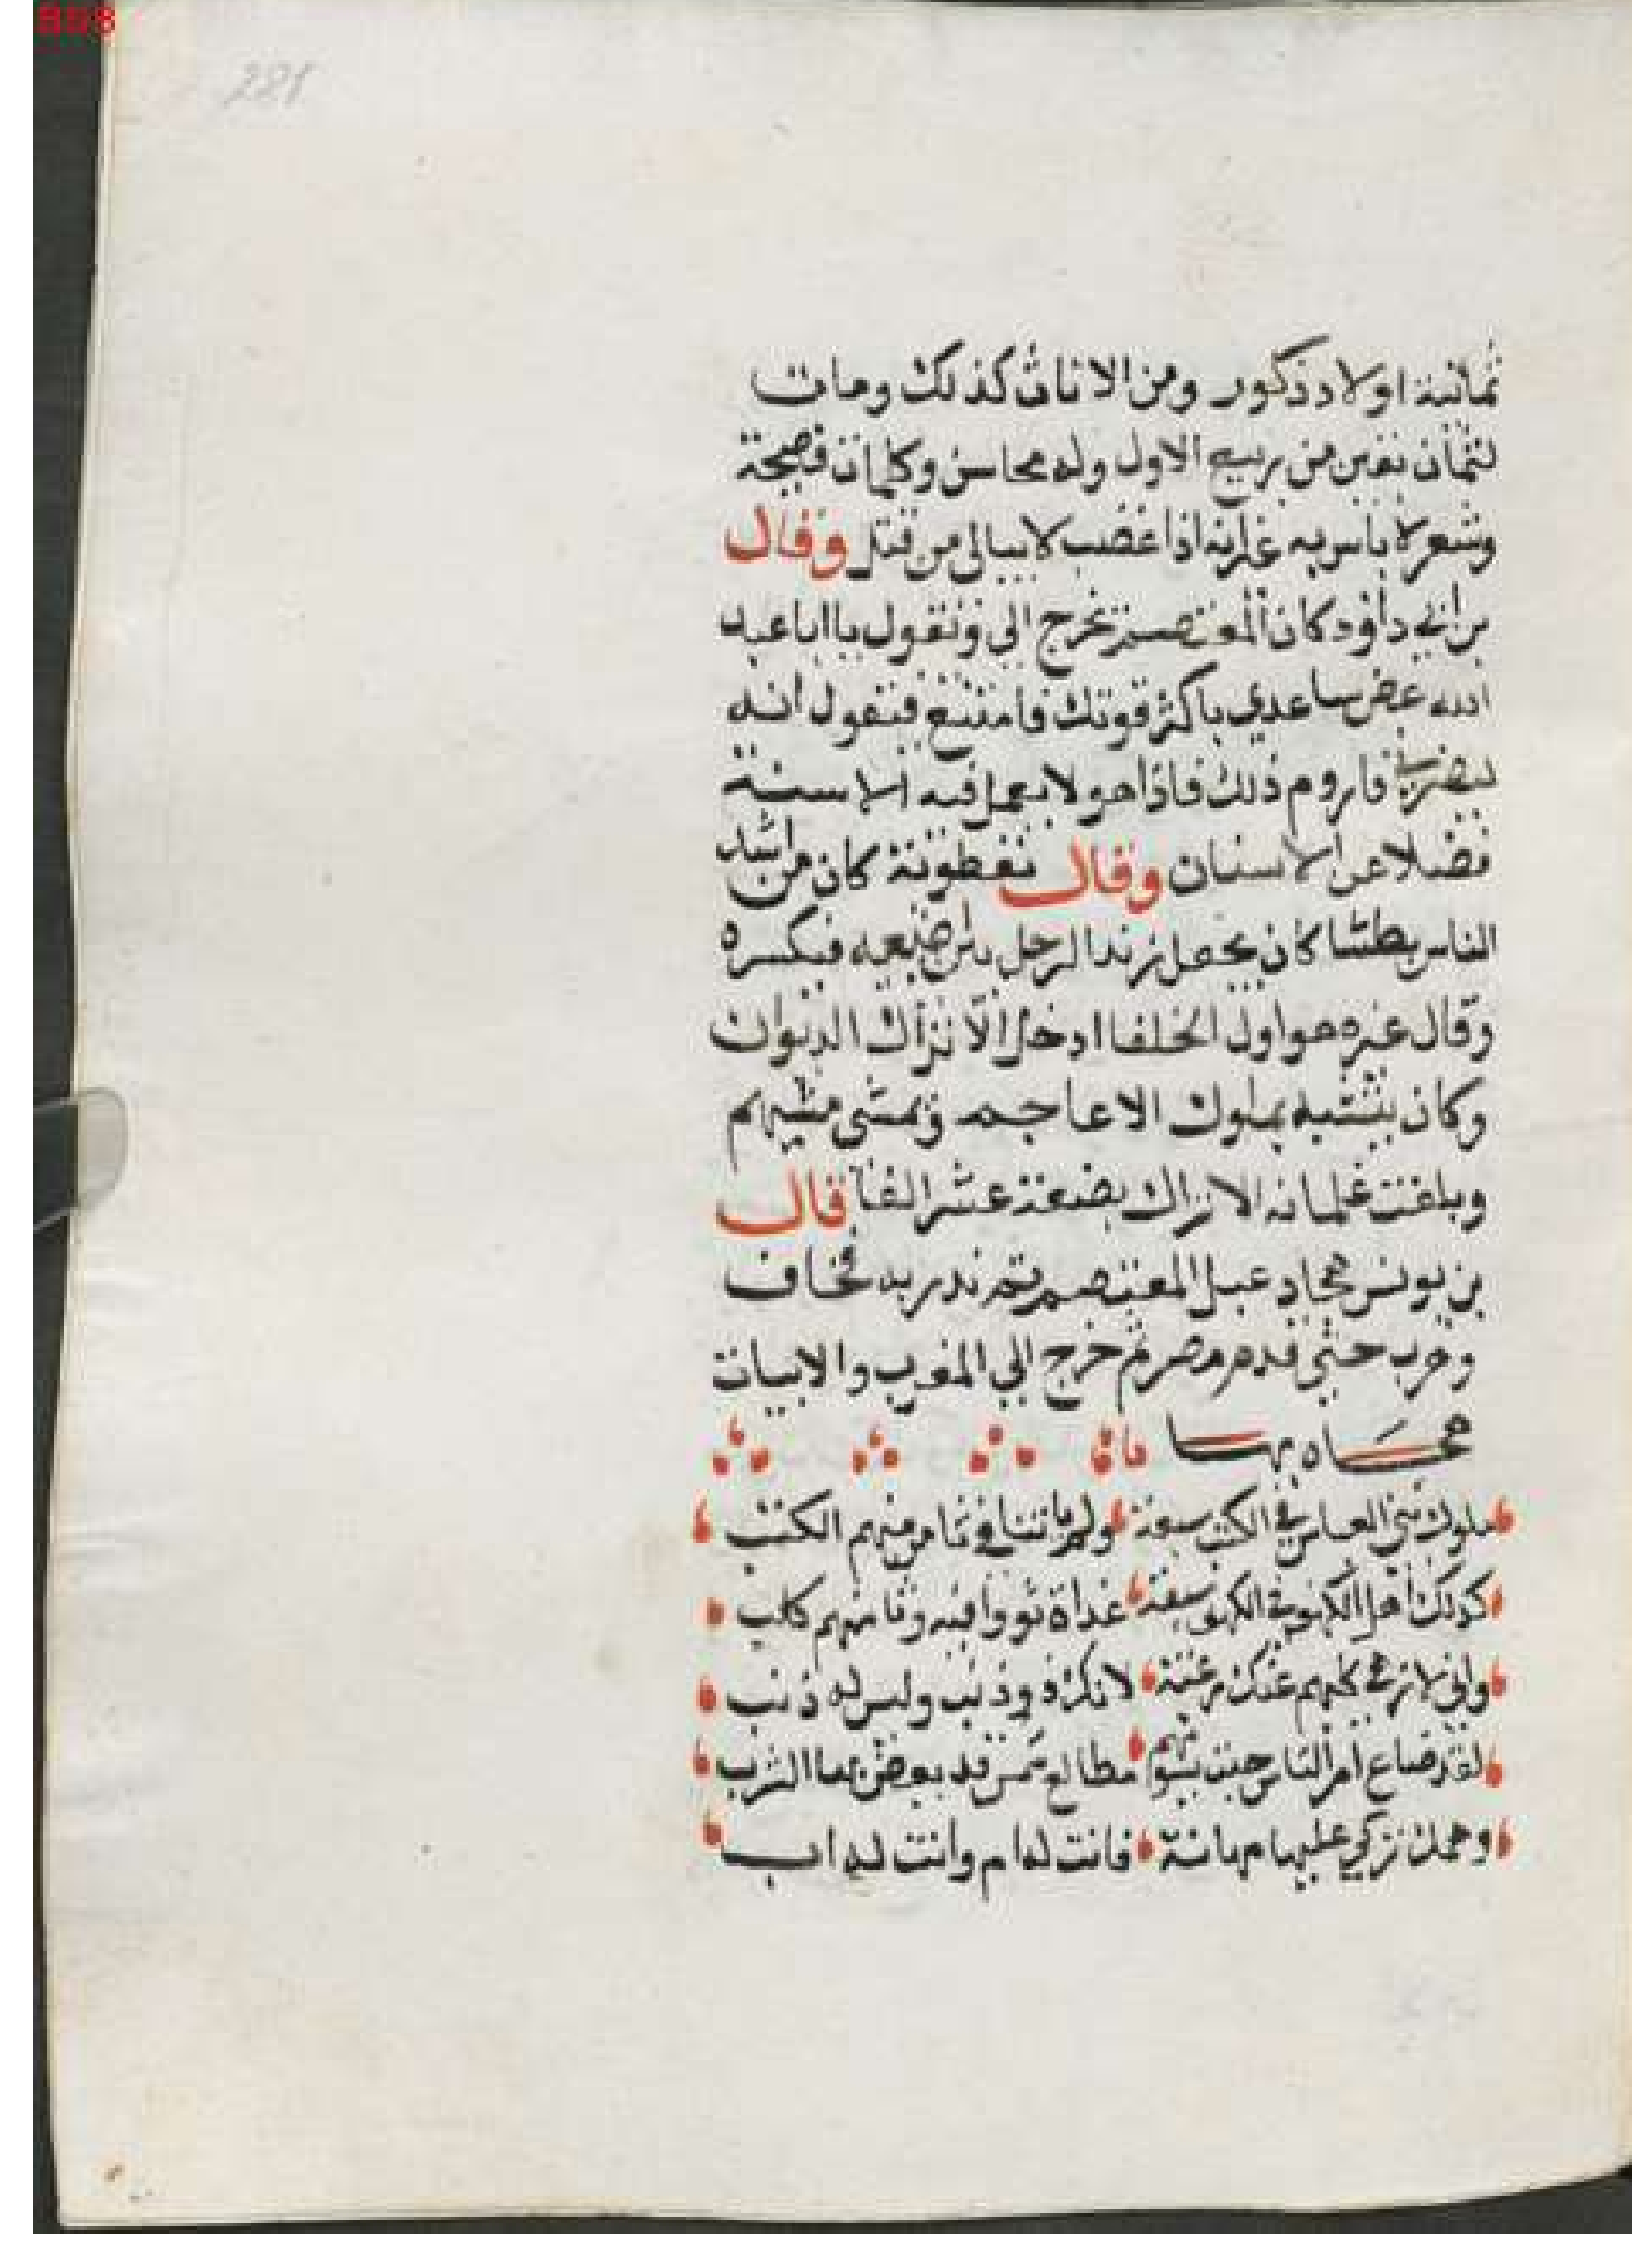 281
ثمانية اولاد ذكور ومن الاناث كذلك ومات
لثمان بقين من ربيع الاول وله محاسن وكلمات فصيحة
وشعر لا باس به غير انه اذا غضب لا يبالي من قتل وقال
بن ابي داود كان المعتصم يخرج الي ويقول يا ابا عبد
الله عض ساعدي باكثر قوتك فامتنع فيقول انه
ليضرني فاروم ذلك فاذا هو لا يعمل فيه الاسنة
فضلا عن الاسنان وقال نفطويه كان من اشد
الناس بطشا كان يجعل زند الرجل بين اصبعيه فيكسره
وقال غيره هو اول الخلفا ادخل الاتراك الديوان
وكان يتشبه بملوك الاعاجم ويمشي مشيهم
وبلغت غلمانه الاتراك بضعة عشر الفا قال
بن يونس هجا دعبل المعتصم ثم نذر به فخاف
وهرب حتي قدم مصر ثم خرج الي المغرب والابيات
هجاه بها
ملوك بني العباس في الكتب سبعة ولم ياتنا في ثامن منهم الكتب
كذلك اهل الكهف في الكهف سبعة غداة ثووا فيه وثامنهم كلب
واني لازهي كلبهم عنك رغبة لانك ذو ذنب وليس له ذنب
لقد ضاع امر الناس حيث يسوسهم
وهمك تركي عليه مهانة فانت له ام وانت له اب